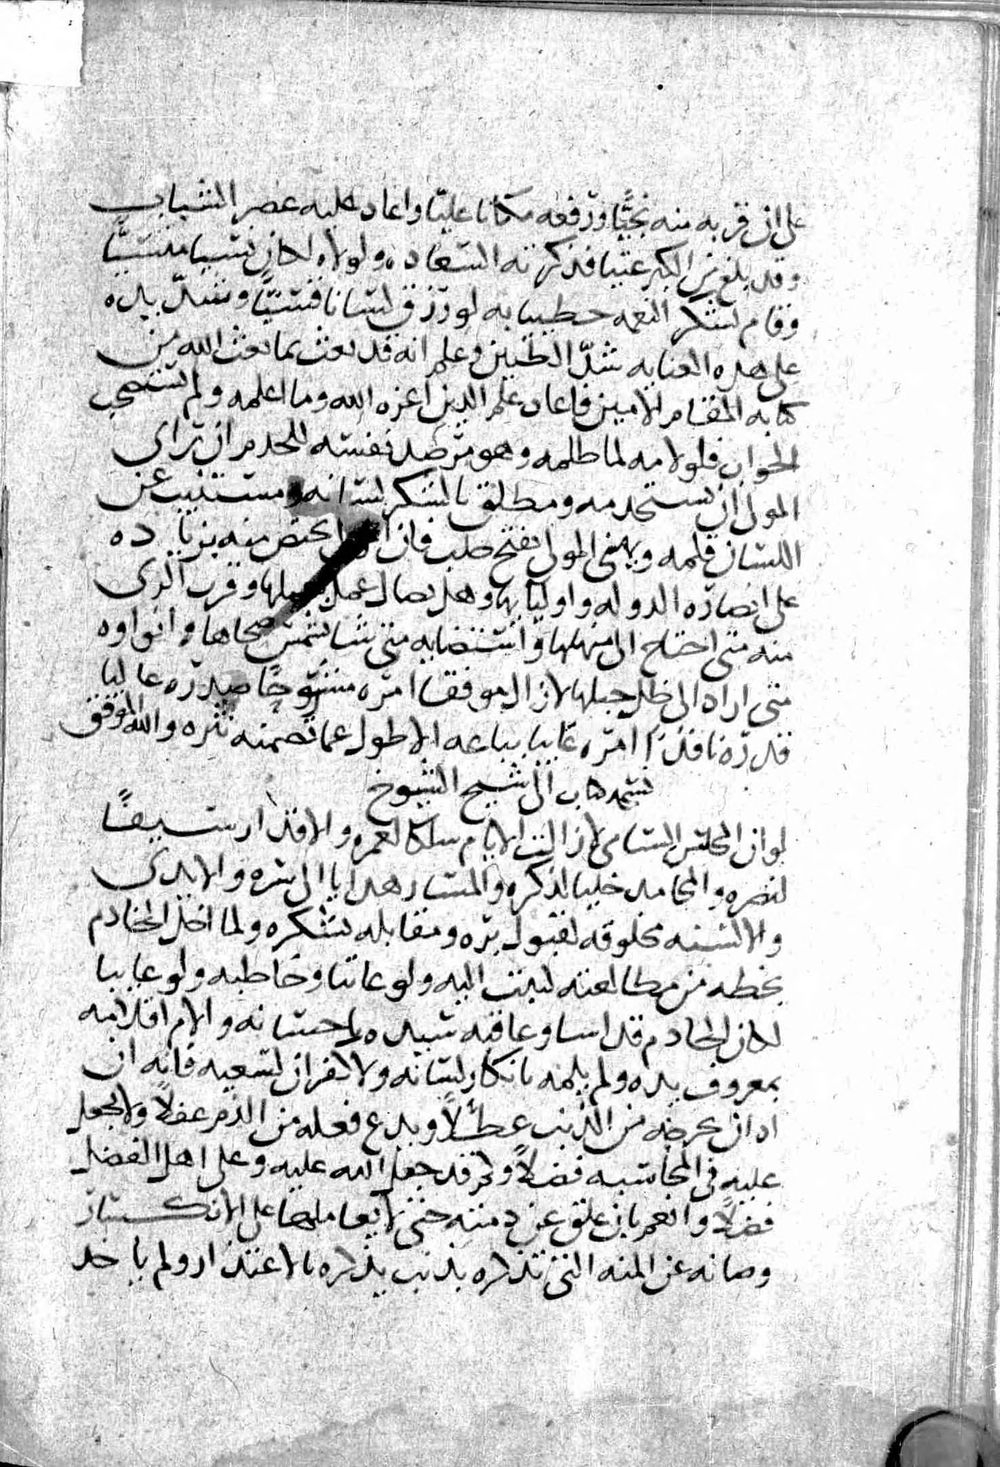 على ان قربه منه نجيا ورفعه مكانا عليا واعاد عليه عصر الشباب
وقد بلغ من الكبر عتيا فذكرته السعاده ولولاه لكان نسيا منسيا
وقام لشكر النعمه خطيبا به لو رزق لسانا وشد يده
على هذه العنايه شد الظنين وعلم انه قد بعث بما بعث الله من
كتابه المقام الامين فاعاد علم الدين اعزه الله وما اعلمه ولم يستصحب
الجواب فلولامه لما ظلمه وهو مرصد نفسته للخدم ان راى
المولى ان يستخدمه ومطلق بالشكر لسانه ومستنيب عن
اللسان قلمه ويهنى المولى بفتح حلب فان يختص منه بزياده
على انصاره الدوله واوليايها وهل يصال عمل وقرب الذى
منه متى احتاج الى منهلها واستضابه متى شا بشمس ضحاها وانواوه
متى اراه الى ظل جبلها لا زال موفقا امره مشروحا صدره عاليا
قدره نافذا امره غايبا بباعه الاطول عما تضمنه نثره والله الموفق
نسخه كتاب الى شيخ الشيوخ
لو ان المجلس السامى لا زالت الايام سلكا لعمره والاقدار سيفا
لنصره والمحامد حليا لذكره والمسار هدايا الى سره والايدى
والالسنه مخلوقه لقبول بره ومقابله بشكره ولما اخل الخادم
بخطه من مطالعته لبعث اليه ولو عاتبا وخاطبه ولو عايبا
لكان الخادم قد اسا وعاقبه سيده باحسانه والام اقدامه
بمعروف يده ولم يلمه بانكار لسانه ولا كفران لسعيه فانه ان
اد ان عرضه من الذنب عطلا ويدع فعله من الذم غفلا ولا يجعل
عليه فى المحاسبه فضلا ولم قد جعل الله عليه وعلى اهل الفضل
فضلا وانعم بان علق عن ذمته حتى لا يعاملها على الانكسار
وصانه عن المنه التى تذكره بذنب يذكره بالاعتذار ولم ياخذ